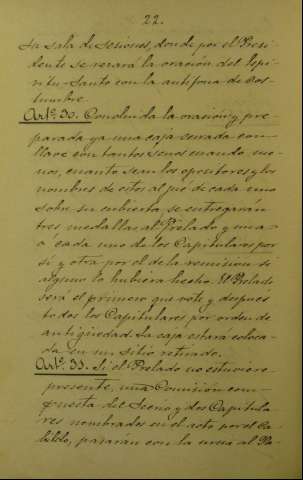 22.
la sala de Sesiones, donde por el Presi-
dente se rezará la oración del Espi-
ritu-Santo con la antifona de cos-
tumbre.
Artº. 30. Concluida la oración y pre-
parada ya una caja cerrada con
llave con tantos senos cuando me-
nos, cuanto sean los opositores y los
nombres de estos al pié de cada uno
sobre su cubierta, se entregarán
tres medallas al Prelado y una
a cada uno de los Capitulares por
sí y otra por el de la remisión si
alguno lo hubiera hecho. El Prelado
será el primero que vote y despues
todos los Capitulares por orden de
antigüedad. La caja estará coloca-
da en un sitio retirado.
Artº. 31. Si el Prelado no estuviere
presente, una Comisión com-
puesta del Secrio y dos Capitula-
res nombrados en el acto por el Ca-
bildo, pasarán con la urna al Pa-